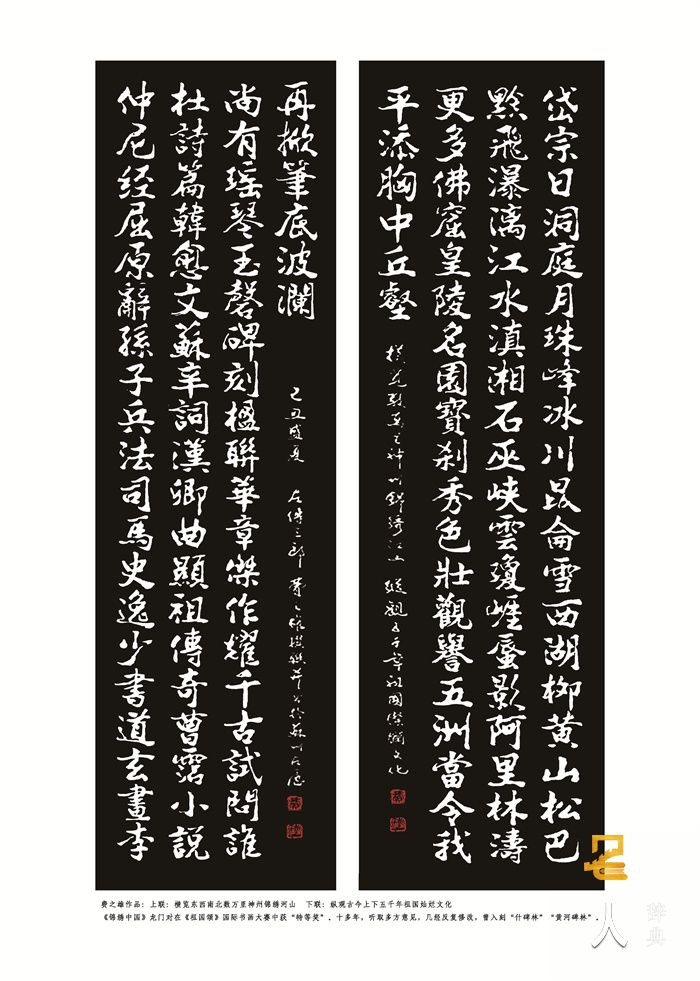 岱宗日洞庭月珠峰冰川昆侖雪西湖柳黄山松巴
黔飛瀑漓江水滇湘石巫峽雲瓊崕蜃影阿里林濤
更多佛窟皇陵名園寶刹秀色壯觀譽五洲當令我
平添胸中丘壑
橫览数万里神州錦綉江山 縱觀五千年祖国燦爛文化
仲尼经屈原辭孫子兵法司馬史逸少書道玄畫李
杜詩篇韓愈文蘇辛詞漢卿曲顯祖傳奇曹霑小説
尚有瑶琴玉磬碑刻楹聯華章傑作耀千古試問誰
再掀筆底波瀾
己丑盛夏 左传三郎 費之雄撰联并书於蘇州
费之雄作品：上联：横览东西南北数万里神州锦绣河山 下联：纵观古今上下五千年祖国灿烂文化
《锦绣中国》龙门对在《祖国颂》国际书画大赛中获“特等奖”。十多年，听取多方意见，几经反复修改，曾入刻“什碑林”“黄河碑林”。
人
辞典